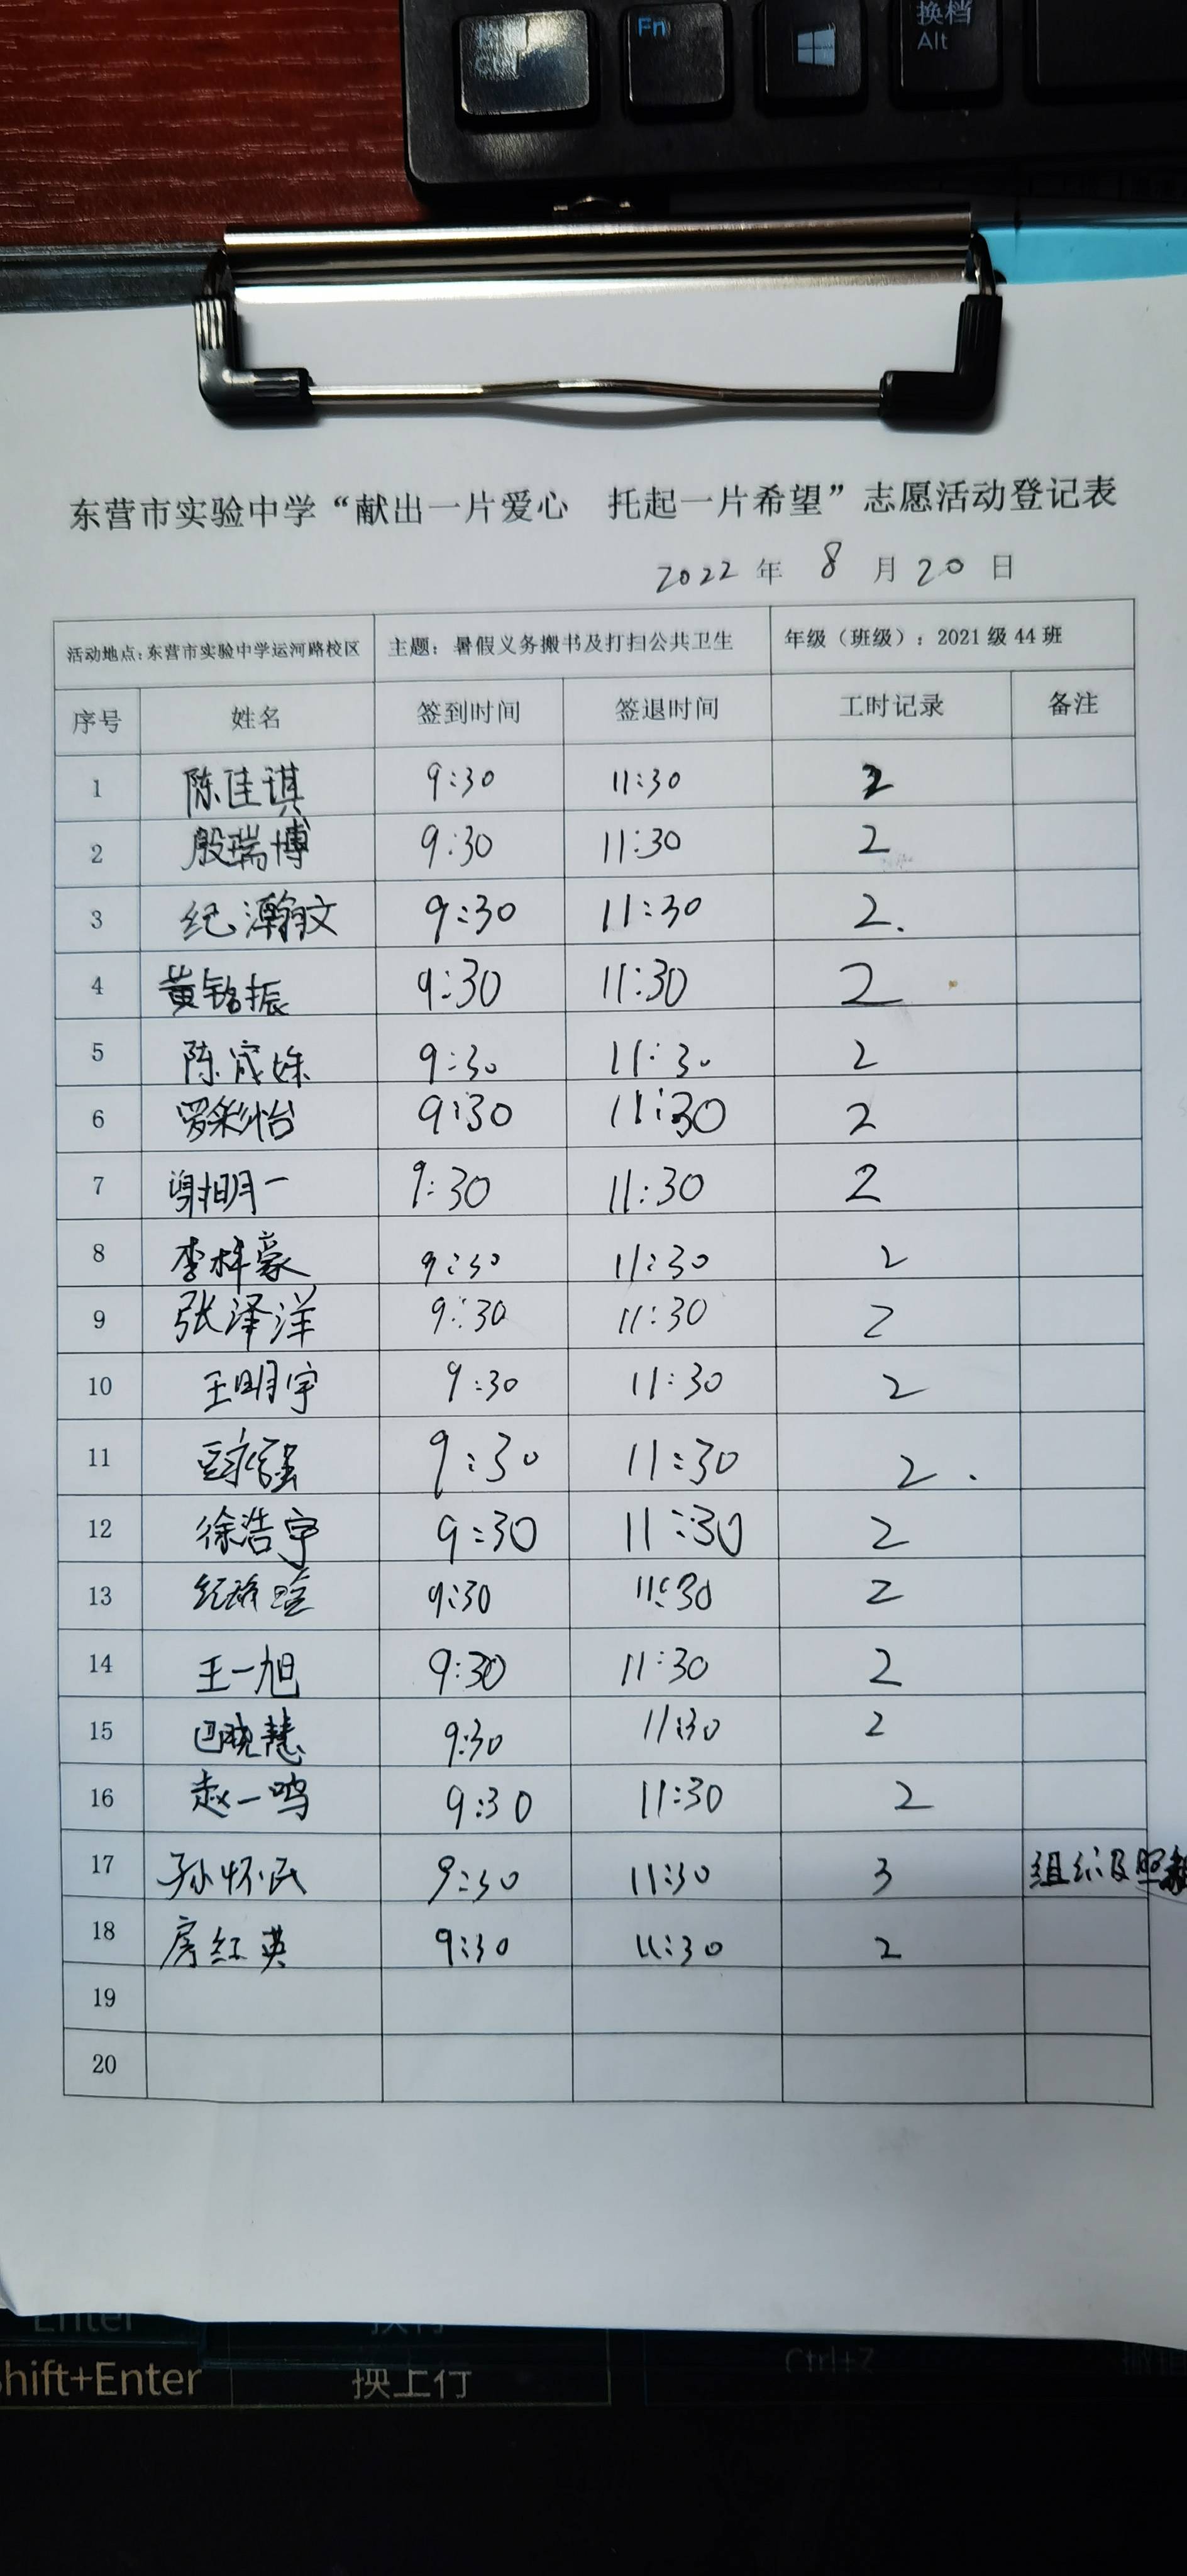 Fn
换档
Alt
东营市实验中学“献出一片爱心 托起一片希望”志愿活动登记表
2022 年 8 月 20 日
活动地点：东营市实验中学运河路校区 主题：暑假义务搬书及打扫公共卫生 年级（班级）：2021级44班
序号 姓名 签到时间 签退时间 工时记录 备注
1 陈佳琪 9:30 11:30 2
2 殷瑞博 9:30 11:30 2
3 纪瀚文 9:30 11:30 2.
4 黄铭振 9:30 11:30 2
5 陈 9:30 11:30 2
6 罗彩怡 9:30 11:30 2
7 谢明一 9:30 11:30 2
8 李梓豪 9:30 11:30 2
9 张泽洋 9:30 11:30 2
10 王明宇 9:30 11:30 2
11 9:30 11:30 2.
12 徐浩宇 9:30 11:30 2
13 纪 9:30 11:30 2
14 王一旭 9:30 11:30 2
15 巴晓慧 9:30 11:30 2
16 赵一鸣 9:30 11:30 2
17 孙怀民 9:30 11:30 3 组织及照
18 房红英 9:30 11:30 2
19
20
Enter 换行
Ctrl+Z
Shift+Enter 换上行